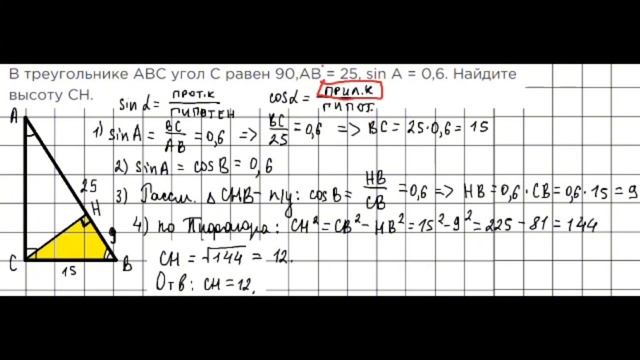 В треугольнике ABC угол C равен 90, AB = 25, sin A = 0,6. Найдите
высоту CH.
sin α = прот.к / гипотен
cos α = прил.к / гипот.
1) sin A = BC / AB = 0,6 => BC / 25 = 0,6 => BC = 25·0,6 = 15
2) sin A = cos B = 0,6
3) Рассм. Δ CHB – п/у: cos B = HB / CB = 0,6 => HB = 0,6 · CB = 0,6 · 15 = 9
4) по Пифагора: CH² = CB² - HB² = 15² - 9² = 225 - 81 = 144
CH = √144 = 12.
Отв: CH = 12.
A
25
H
9
C
15
B